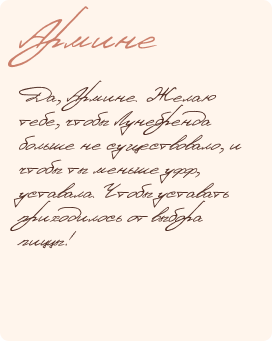 Армине
Да, Армине. Желаю
тебе, чтобы Лунебренда
больше не существовало, и
чтобы ты меньше уфф,
уставала. Чтобы уставать
приходилось от выбора
пиццы!